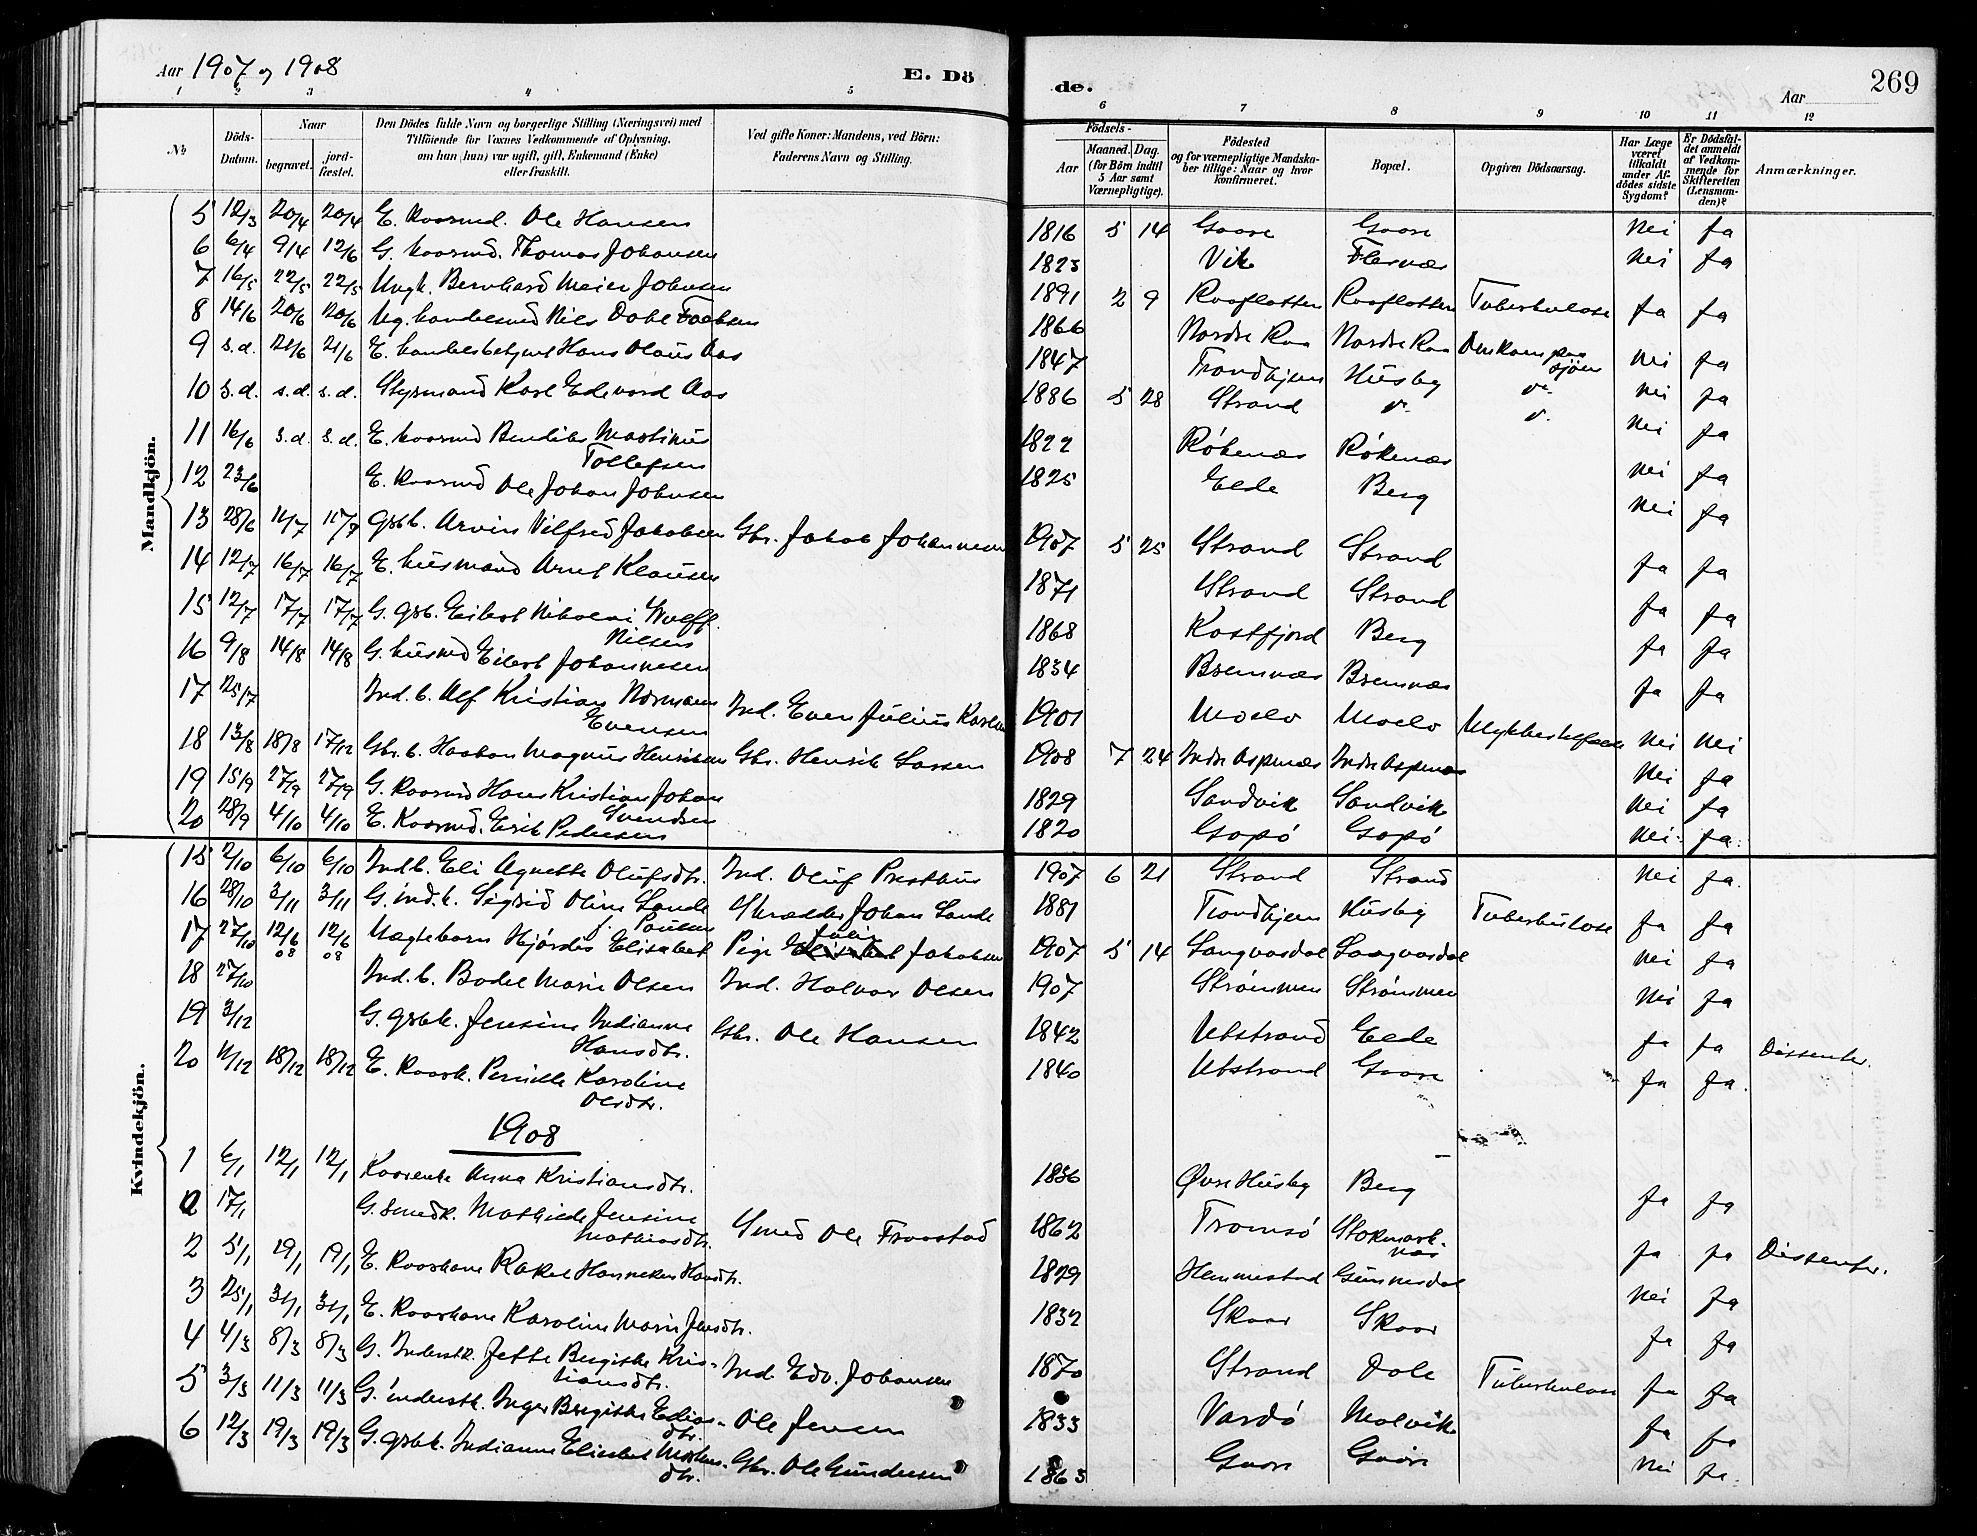 Aar 1907 og 1908
E. Dö
de.
Aar
269
1 2 3 4 5 6 7 8 9 10 11 12
№
Döds-Datum.
Naar
begravet.
jord-fæstet.
Den Dödes fulde Navn og borgerlige Stilling (Næringsvei) med Tilföiende for Voxnes Vedkommende af Oplysning, om han (hun) var ugift, gift, Enkemand (Enke) eller fraskilt.
Ved gifte Koner: Mandens, ved Börn: Faderens Navn og Stilling.
Födsels-
Aar
Maaned. Dag. (for Börn indtil 5 Aar samt Værnepligtige).
Födested og for værnepligtige Mandskaber tillige: Naar og hvor konfirmeret.
Bopæl.
Opgiven Dödsaarsag.
Har Læge været tilkaldt under Afdödes sidste Sygdom?
Er Dödsfaldet anmeldt af Vedkommende for Skifteretten (Lensmanden)?
Anmærkninger.
Mandkjön.
5 12/3 20/4 20/4 E. Kaarmd. Ole Hansen 1816 5 14 Gaare Gaare Nei Ja
6 6/4 9/4 12/6 G. kaarmd. Thomas Johansen 1823 Vik Flesnæs Nei Ja
7 16/5 22/5 22/5 Ungk. Bernhard Meier Johnsen 1891 2 9 Raaflatten Raaflatten Tuberkulose Ja Ja
8 14/6 20/6 20/6 Ug. handelsmd Nils Dahl 1866 Nordre Raa Nordre Raa Omkom paa sjöen Nei Ja
9 s.d. 21/6 21/6 E. handelsbetjent Hans Olaus Aas 1847 Trondhjem Husby Nei Ja
10 s.d. s.d. s.d. Styrmand Karl Edevard Aas 1886 5 28 Strand Nei Ja
11 16/6 s.d. s.d. E. kaarmd Bendiks Martinus Tollefsen 1822 Rökenæs Rökenæs Nei Ja
12 23/6 E. Kaarmd Ole Johan Johnsen 1825 Elde Berg Nei Ja
13 28/6 11/7 gbrb. Arvin Vilfred Jakobsen Gbr. Jakob Johannesen 1907 5 25 Strand Strand Ja Ja
14 12/7 16/7 16/7 E. husmand Arnt Klausen 1871 Strand Strand Ja Ja
15 12/7 17/7 17/7 G. gbr. Eilert Nikolai Wolff Nilsen 1868 Kastfjord Berg Ja Ja
16 9/8 14/8 14/8 G. husmd Eilert Johannesen 1834 Bremnæs Bremnæs Ja Ja
17 25/7 Ind. b. Alf Kristian Normann Evensen Ind. Even Julius Karlsen 1901 Moelv Moelv Nei Nei
18 13/8 18/8 17/12 Gbr. b. Haakon Magnus Henriksen Gbr. Henrik Larsen 1908 7 24 Indre Aspenæs Indre Aspenæs Nei Ja
19 15/9 27/9 27/9 G. Kaarmd Hans Kristian Johan Svendsen 1829 Sandvik Sandvik Nei Ja
20 28/9 4/10 4/10 E. Kaarmd. Erik Pedersen 1820 Gapö Gapö Nei Ja.
Kvindekjön.
15 2/10 6/10 6/10 Ind. b. Eli Agnethe Olufsdtr. Ind. Oluf Presthus 1907 6 21 Strand Strand Nei Ja.
16 28/10 3/11 3/11 G. ind. k. Sigrid Oline Lande f. Paulsen Skrædder Johan Lande 1881 Trondhjem Husby Tuberkulose Ja Ja
17 27/10 12/6 08 12/6 08 Uægtebarn Hjördis Elisabet Pige Julie Jakobsen 1907 5 14 Langvasdal Langvasdal Nei Ja
18 27/10 Ind. b. Bodel Marie Olsen Ind. Halvar Olsen 1907 Strömmen Strömmen Nei Ja
19 3/12 G. gbrk. Jensine Indianna Hansdtr. Gbr. Ole Hansen 1842 Utstrand Elde Ja Ja Dissenter.
20 11/12 18/12 18/12 E. Kaark. Pernille Karoline Olsdtr. 1840 Utstrand Gaare Ja Ja.
1908
1 6/1 12/1 12/1 Kaarenke Anna Kristiansdtr. 1836 Övre Husby Berg Ja Ja
a 17/1 G. smedk. Mathilde Jensine Mathiasdtr. Smed Ole Fraastad 1862 Tromsö Stokmarknæs Ja Ja Dissenter.
2 5/1 19/1 19/1 E. Kaarkone Rakel Hanneken Hansdtr. 1829 Hemmestad Gunnesdal Nei Ja
3 25/1 31/1 31/1 E. Kaarkone Karoline Marie Jensdtr. 1832 Skaar Skaar Ja Ja
4 4/3 8/3 8/3 G. Inderstk. Jette Bergitte Kristiansdtr. Ind. Edv. Johansen 1870 Strand Dale Tuberkulose Ja Ja
5 3/3 11/3 11/3 G. inderstk. Inger Bergitte Eliasdtr. Ole Jensen 1833 Vardö Molvik Ja Ja
6 12/3 19/3 19/3 G. gbrk. Indianna Elisabet Mortensdtr. Gbr. Ole Gundersen 1863 Gaare Gaare Nei Ja.